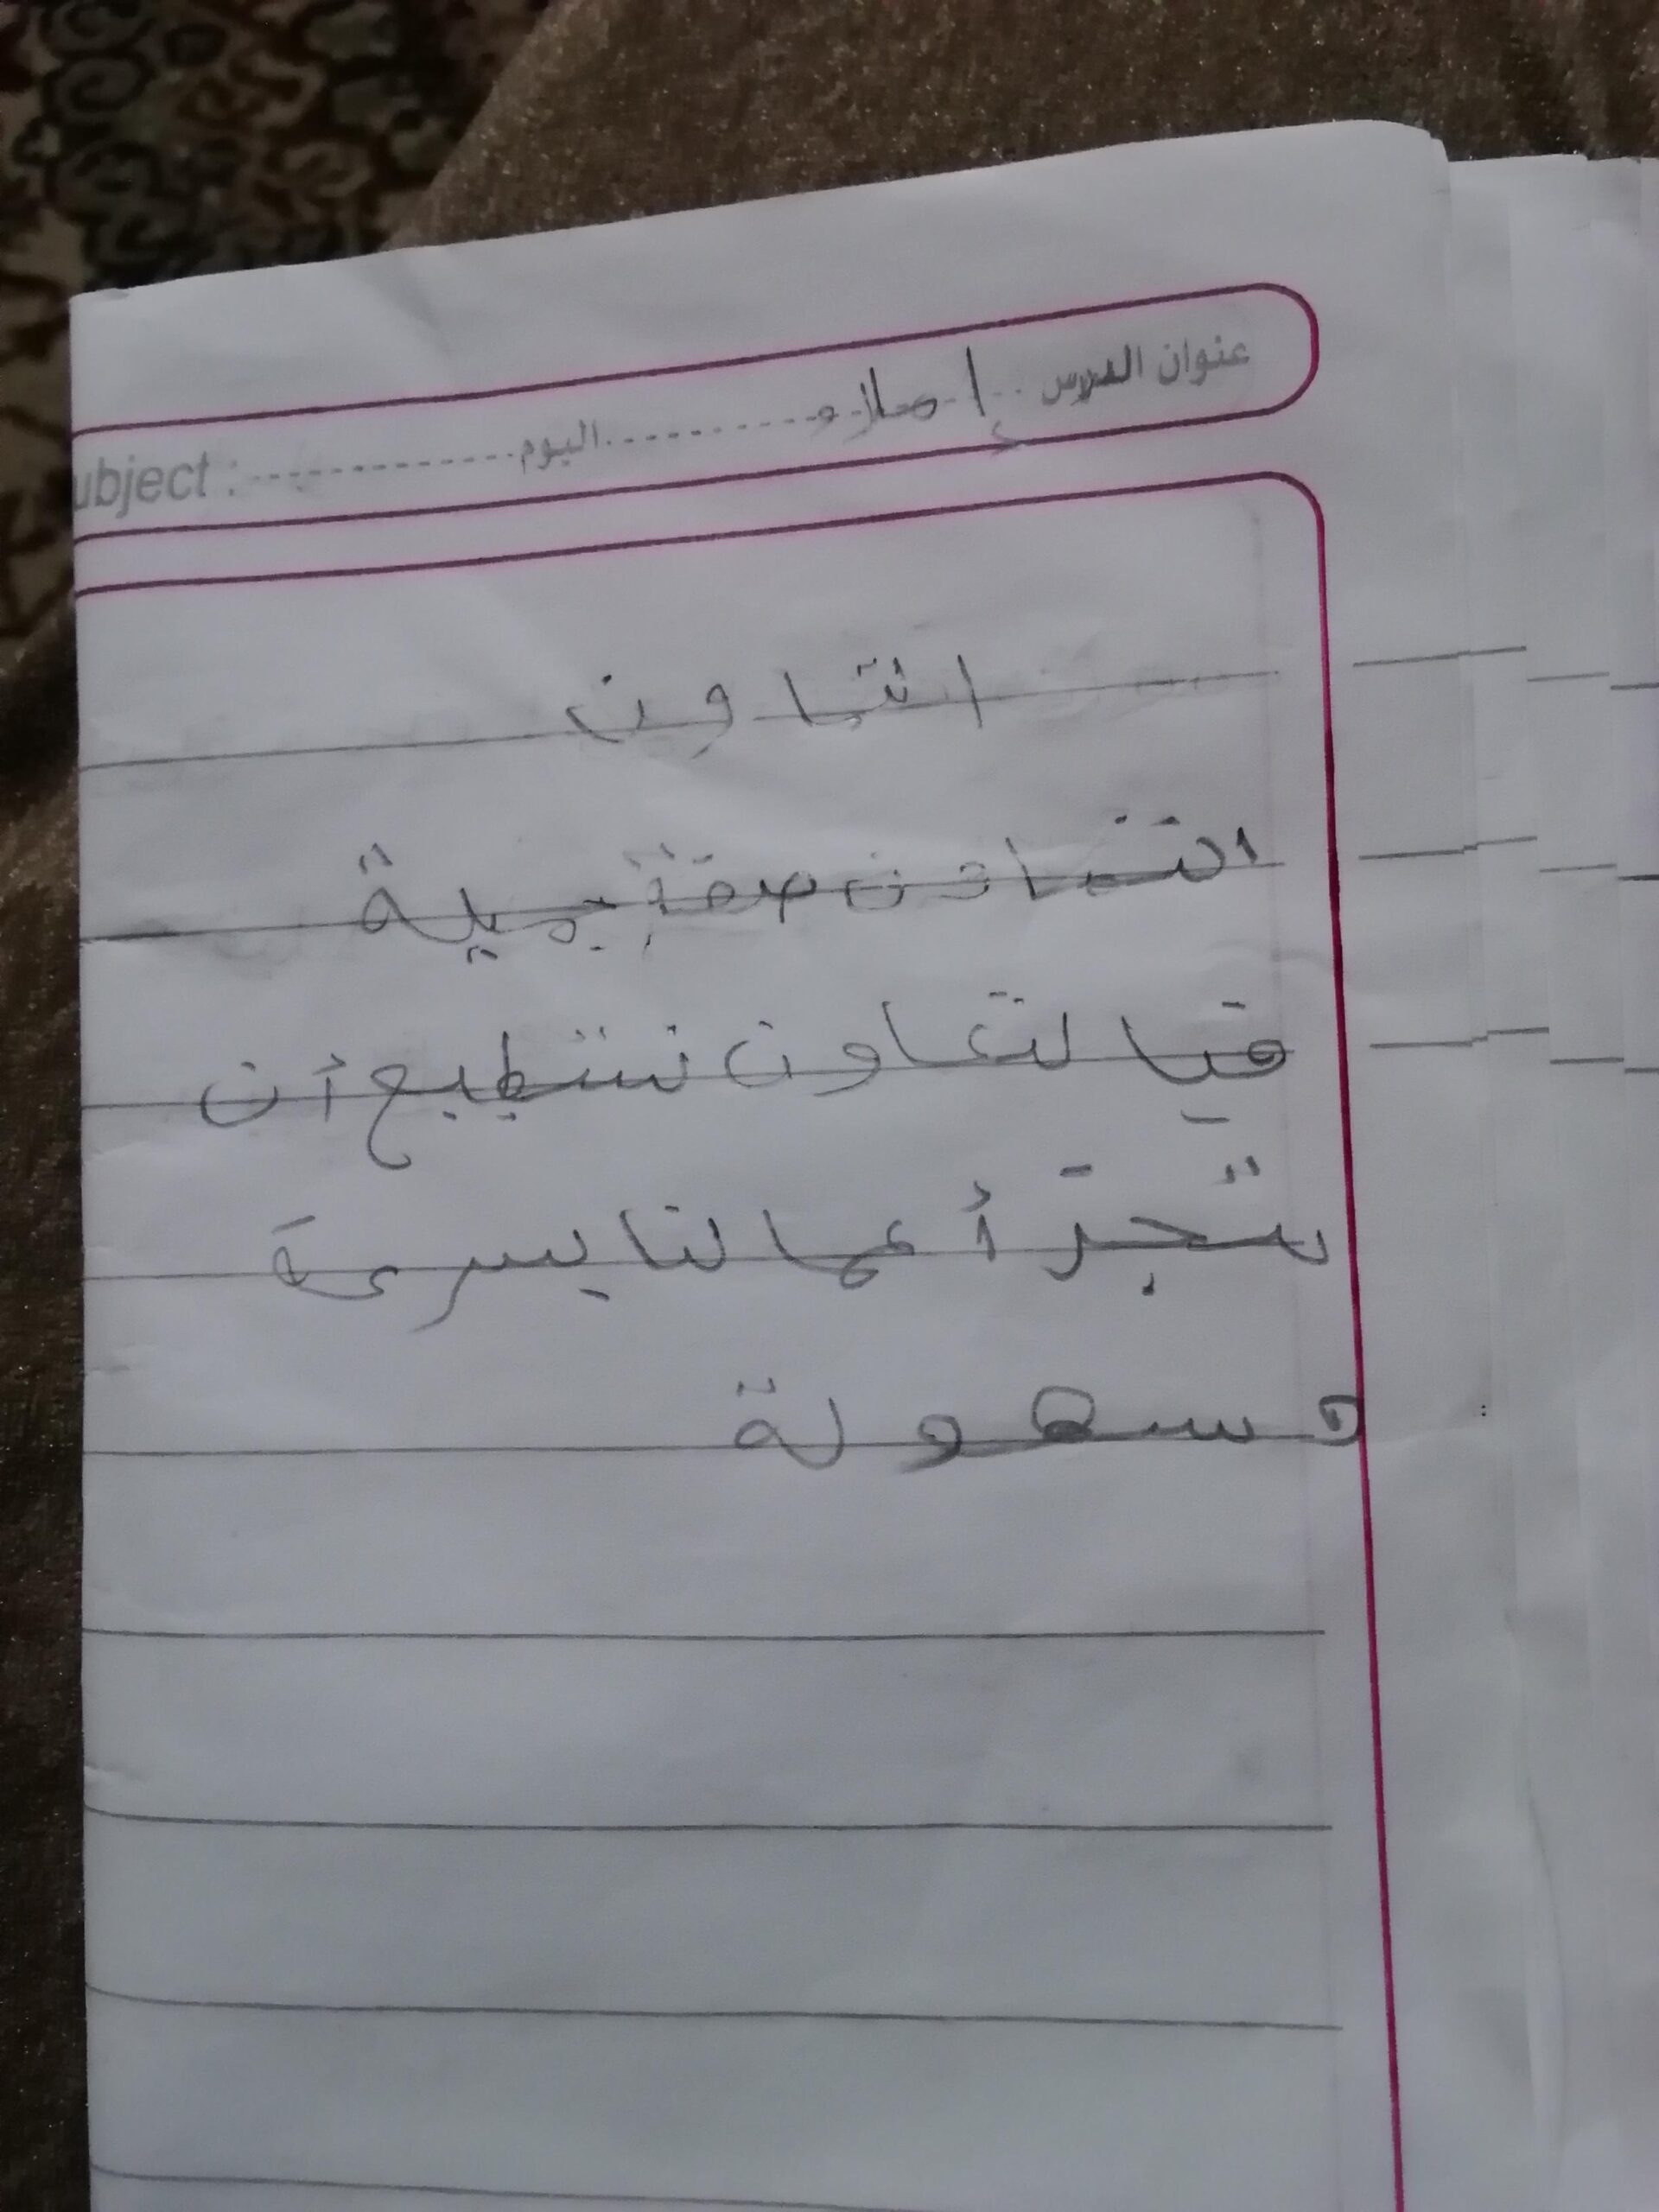 عنوان الدرس إملاء اليوم ubject :
التعاون
التعاون صفة جميلة
فبا لتعاون نستطيع أن
ننجز أعما لنا بسرعة
وسهولة